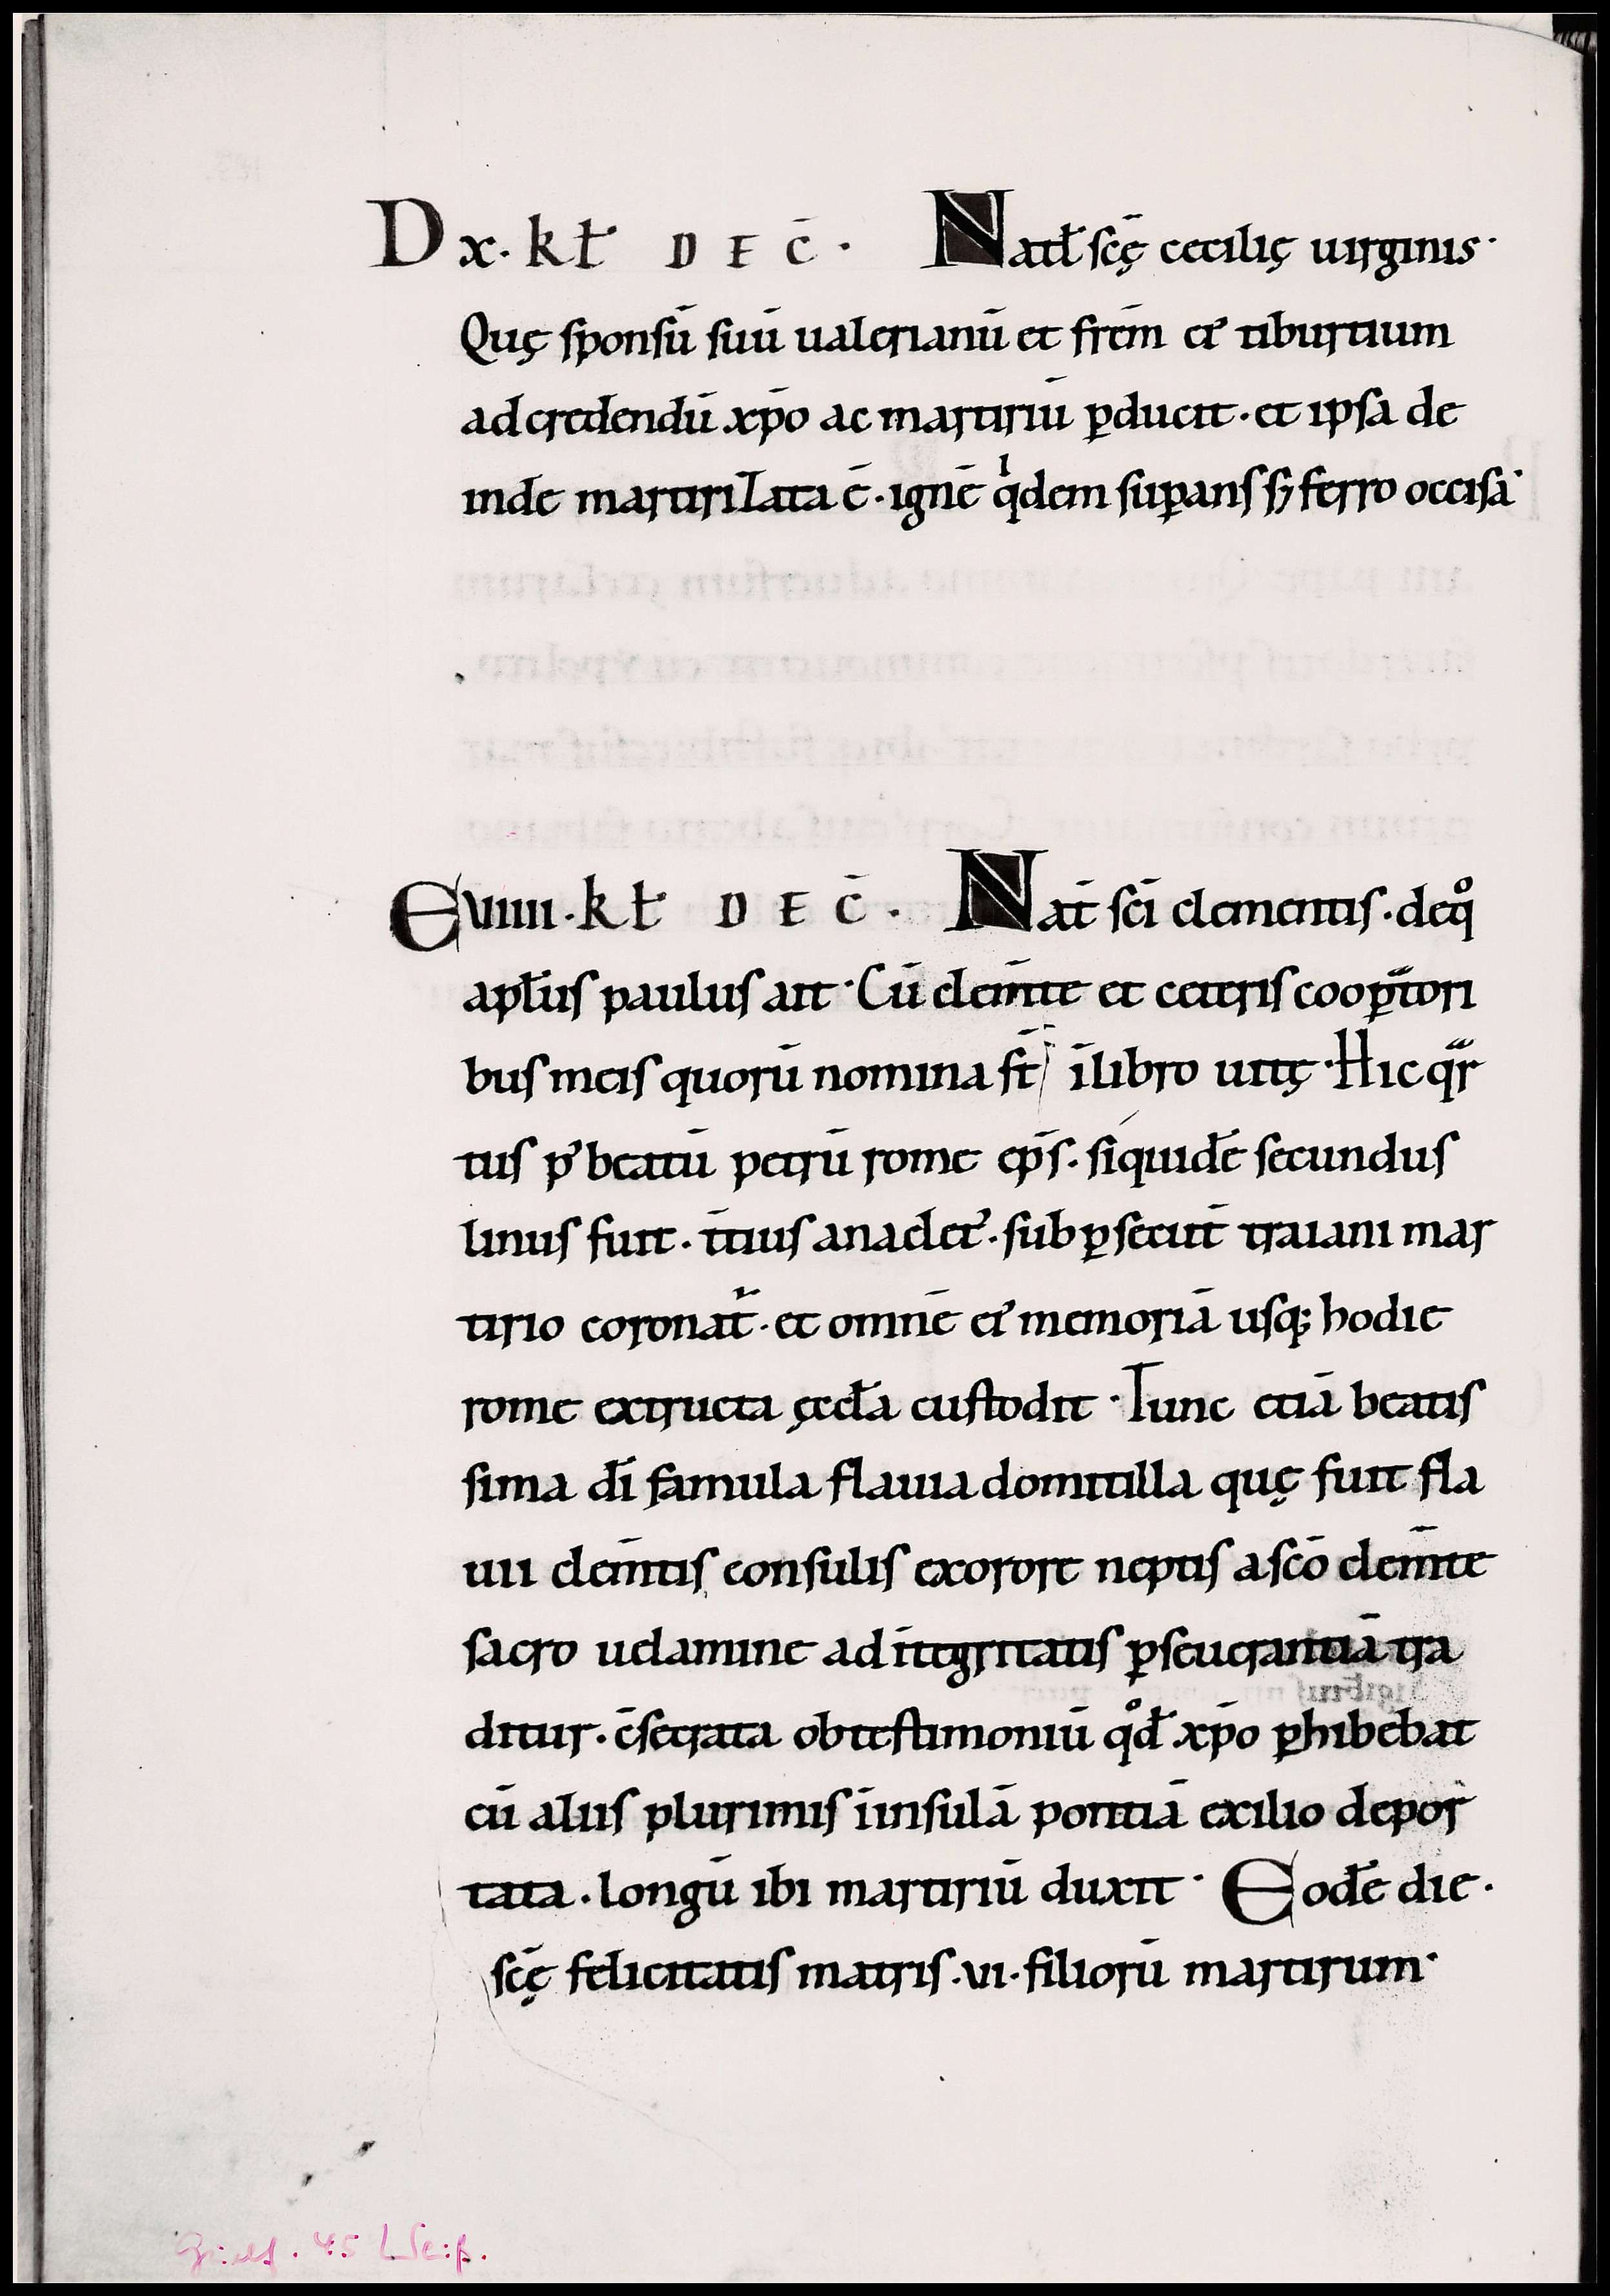 D x. kł DEC̄. Natł sc̄ę cecilię uirginis.
Quę sponsū suū ualerianū et frēm ei' tiburtium
ad credendū xp̄o ac martiriū ꝑducit. et ipsa de
inde martirizata ē. ignē qⁱdem suꝑans sꝫ ferro occisa.
E VIIII. kł DEC̄. Nat̄ sc̄i clementis. de qͦ
apłus paulus ait. Cū clem̄te et ceteris cooꝑatori
bus meis quorū nomina st̄ ī libro uitę. Hic qᵃr
tus p' beatū petrū rome ep̄s. siquidē secundus
linus fuit. t̄tius anaclet'. sub ꝑsecut̄ traiani mar
tirio coronat̄. et omnē ei' memoriā usq; hodie
rome extructa ęccła custodit. Tunc etiā beatis
sima di famula flauia domitilla quę fuit fla
uii clem̄tis consulis ex sorore neptis a sc̄o clem̄te
sacro uelamine ad ītegritatis ꝑseuerantiā tra
ditur. c̄secrata ob testimoniū qͦd xp̄o ꝑhibebat
cū aliis plurimis ī insulā pontiā exilio depor
tata. longū ibi martiriū duxit. Eodē die.
sc̄ę felicitatis matris. VI. filiorū martirum.